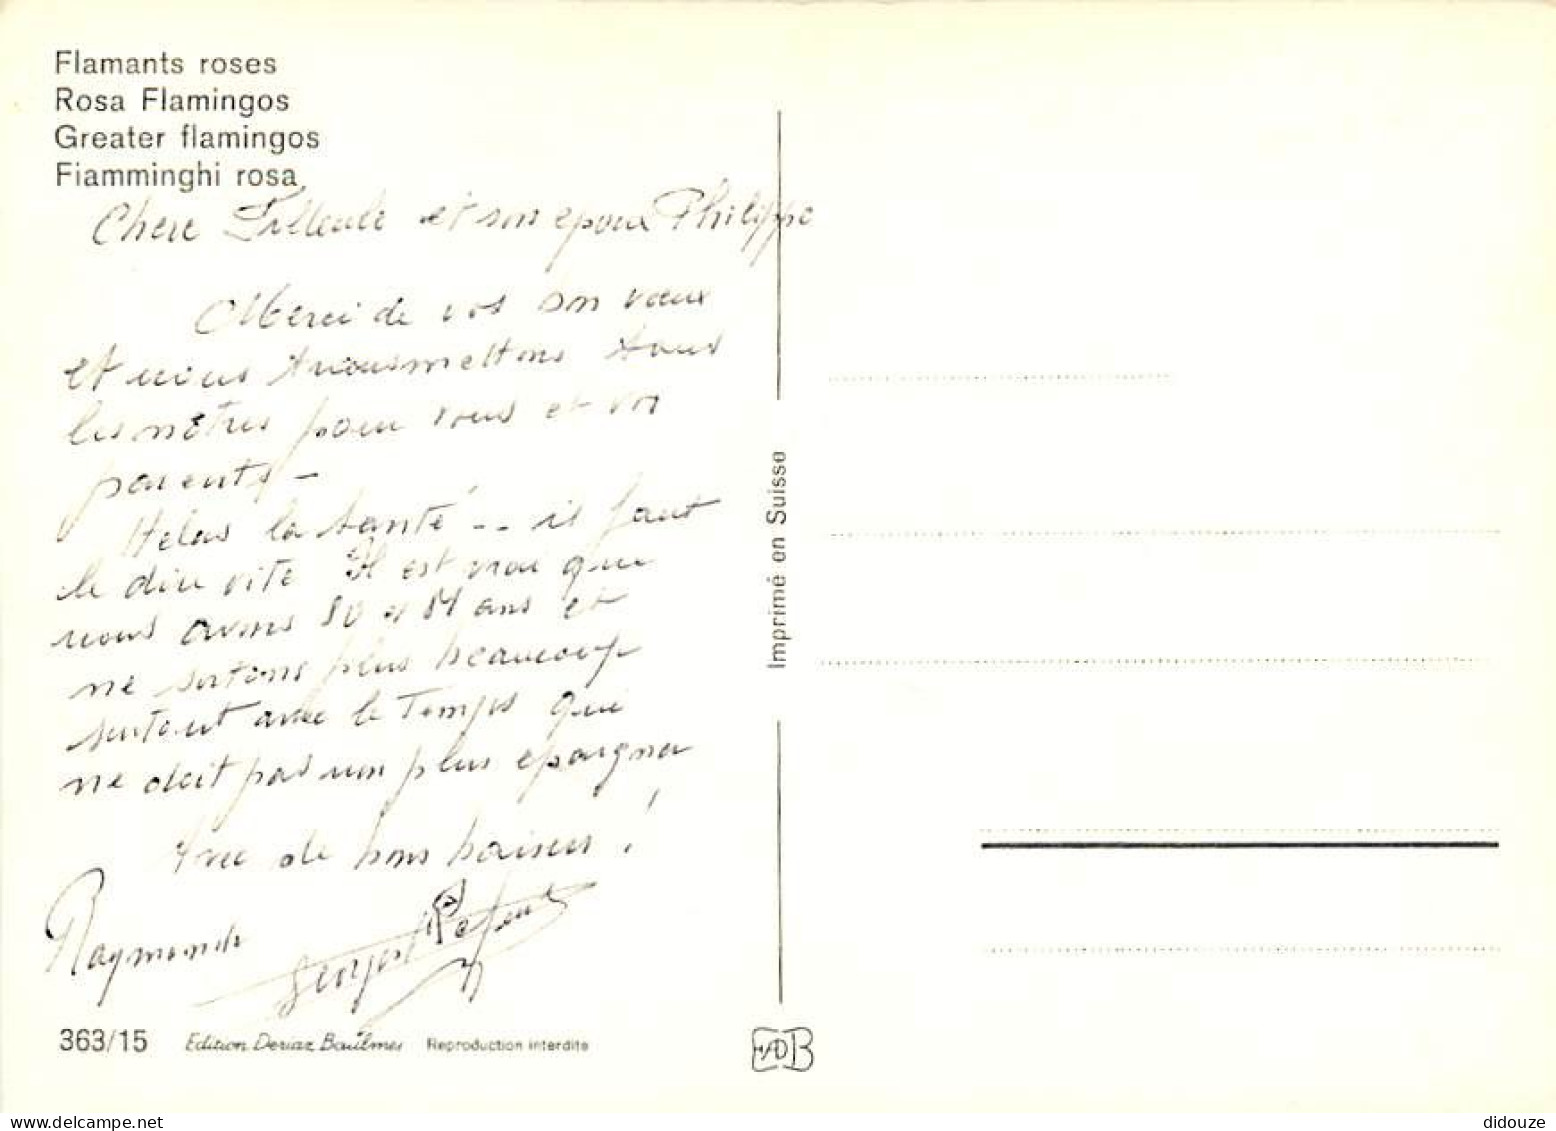 Flamants roses
Rosa Flamingos
Greater flamingos
Fiamminghi rosa
Chere Filleule et son epoux Philippe
Merci de vos bon vœux
et nous transmettons tous
les nôtres pour vous et vos
parents -
Helas la santé -- il faut
le dire vite Il est vrai que
nous avons 80 et 84 ans et
ne sortons plus beaucoup
surtout avec le Temps qui
ne doit pas vous plus epargner
Avec de bons baisers !
Raymonde
363/15 Edition Deriaz Baulmes Reproduction interdite
Imprimé en Suisse
didouze